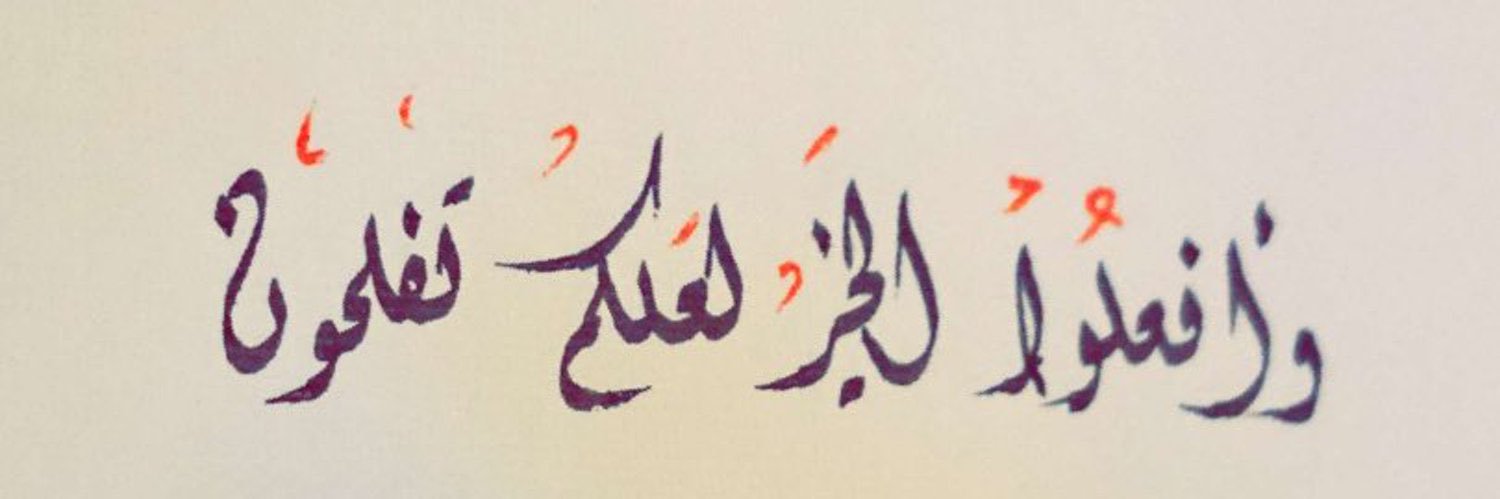 وافعلوا الخير لعلكم تفلحون